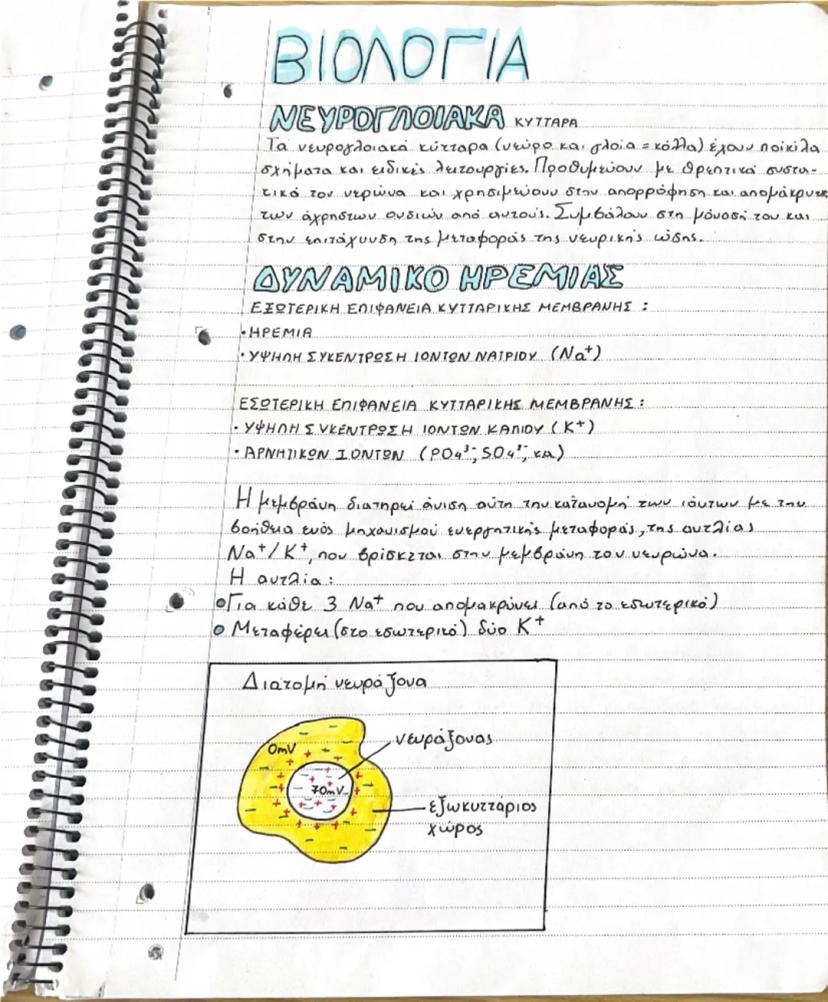 ΒΙΟΛΟΓΙΑ
ΝΕΥΡΟΓΛΟΙΑΚΑ ΚΥΤΤΑΡΑ
Τα νευρογλοιακά κύτταρα (νεύρο και γλοία = κόλλα) έχουν ποικίλα
σχήματα και ειδικές λειτουργίες. Προθυμεύουν με θρεπτικά συστα-
τικά τον νερώνα και χρησιμεύουν στην απορρόφηση και απομάκρυνση
των άχρηστων ουσιών από αυτούς. Συμβάλουν στη μόνοσή του και
στην επιτάχυνση της μεταφοράς της νευρικής ώσης.
ΔΥΝΑΜΙΚΟ ΗΡΕΜΙΑΣ
ΕΞΩΤΕΡΙΚΗ ΕΠΙΦΑΝΕΙΑ ΚΥΤΤΑΡΙΚΗΣ ΜΕΜΒΡΑΝΗΣ :
• ΗΡΕΜΙΑ
• ΥΨΗΛΗ ΣΥΚΕΝΤΡΩΣΗ ΙΟΝΤΩΝ ΝΑΤΡΙΟΥ (Na⁺)
ΕΣΩΤΕΡΙΚΗ ΕΠΙΦΑΝΕΙΑ ΚΥΤΤΑΡΙΚΗΣ ΜΕΜΒΡΑΝΗΣ :
• ΥΨΗΛΗ ΣΥΚΕΝΤΡΩΣΗ ΙΟΝΤΩΝ ΚΑΛΙΟΥ (Κ⁺)
• ΑΡΝΗΤΙΚΩΝ ΙΟΝΤΩΝ (PO₄³⁻, SO₄²⁻, κα)
Η μεμβράνη διατηρεί άνιση αύτη την κατανομή των ιόντων με την
βοήθεια ενός μηχανισμού ενεργητικής μεταφοράς, της αυτλίας
Na⁺/K⁺, που βρίσκεται στην μεμβράνη του νευρώνα.
Η αυτλία :
Για κάθε 3 Na⁺ που απομακρύνει (από το εσωτερικό)
Μεταφέρει (στο εσωτερικό) δύο K⁺
Διατομή νευράξονα
0mV
νευράξονας
70mV
εξωκυττάριος
χώρος